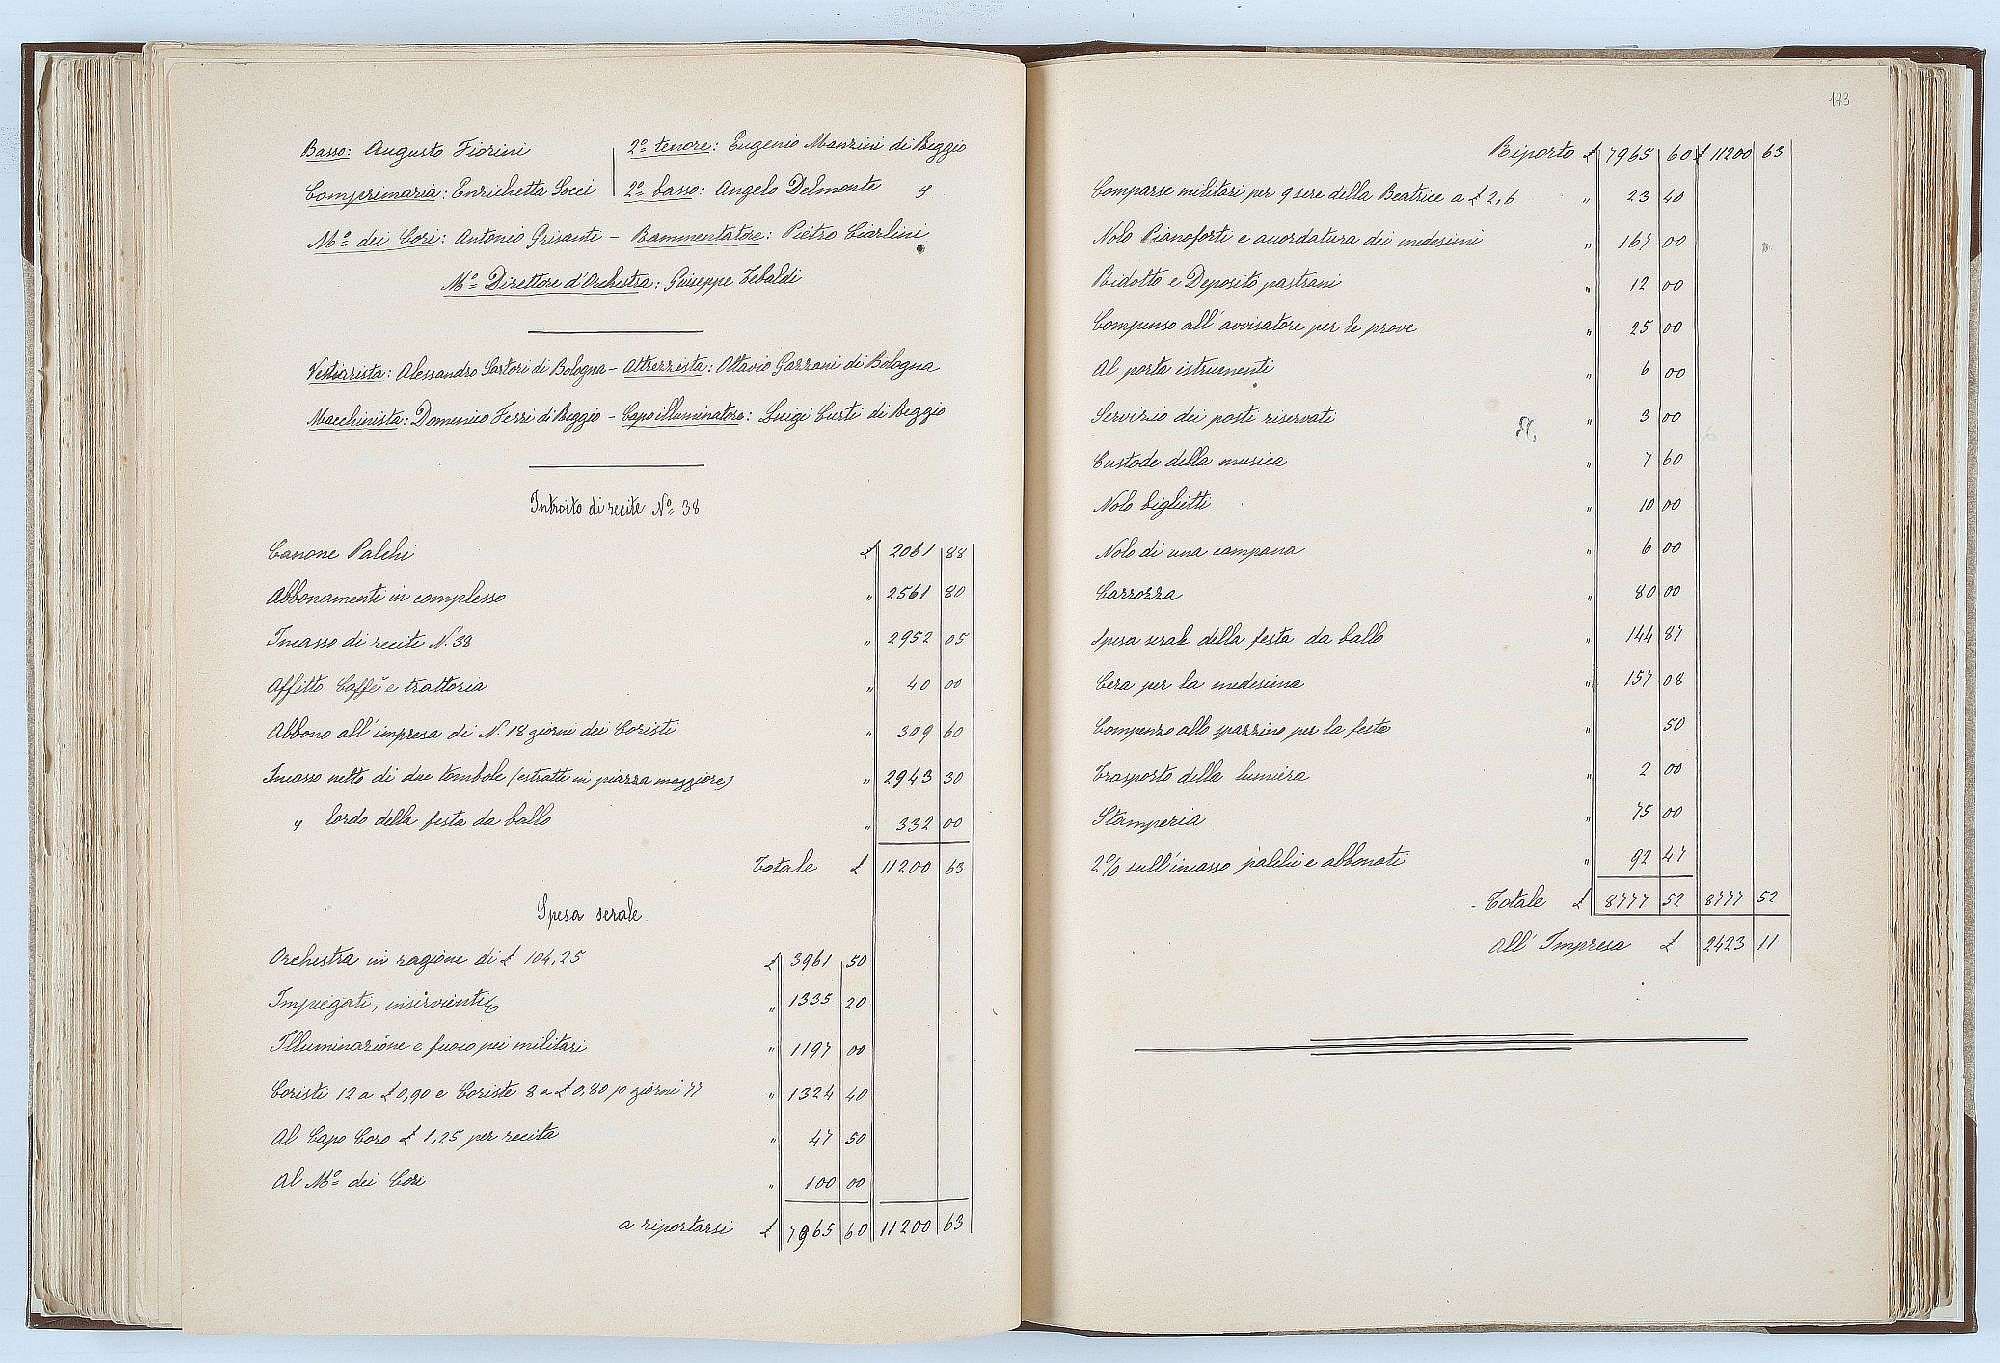 Basso: Augusto Fiorini
2º tenore: Eugenio Manzini di Reggio
Comprimaria: Enrichetta Socci
2º basso: Angelo Delmonte "
Mº dei Cori: Antonio Grisanti - Rammentatore: Pietro Ciarlini
Mº Direttore d'Orchestra: Giuseppe Tebaldi
Vestiarista: Alessandro Sartori di Bologna - Attrezzista: Ottavio Gazzani di Bologna
Macchinista: Domenico Ferri di Reggio - Capoilluminatore: Luigi Curti di Reggio
Introito di recite Nº 38
Canone Palchi £ 2061 88
Abbonamenti in complesso " 2561 80
Incasso di recite N. 38 " 2952 05
Affitto Caffè e trattoria " 40 00
Abbono all'impresa di N. 18 giorni dei Coristi " 309 60
Incasso netto di due tombole (estratte in piazza maggiore) " 2943 30
" lordo della festa da ballo " 332 00
Totale £ 11200 63
Spesa serale
Orchestra in ragione di £ 104,25 £ 3961 50
Impiegati, inservienti " 1335 20
Illuminazione e fuoco pei militari " 1197 00
Coristi 12 a £ 0,90 e Coriste 8 a £ 0,80 p giorni 77 " 1324 40
Al Capo Coro £ 1,25 per recita " 47 50
Al Mº dei Cori " 100 00
a riportarsi £ 7965 60 11200 63
173
Riporto £ 7965 60 £ 11200 63
Comparse militari per 9 sere della Beatrice a £ 2,6 " 23 40
Nolo Pianoforti e accordatura dei medesimi " 167 00
Ridotto e Deposito pastrani " 12 00
Compenso all'avvisatore per le prove " 25 00
Al porta istrumenti " 6 00
Servizio dei posti riservati " 3 00
Custode della musica " 7 60
Nolo biglietti " 10 00
Nolo di una campana " 6 00
Carrozza " 80 00
Spesa serale della festa da ballo " 144 87
Cera per la medesima " 157 08
Compenso allo spazzino per la festa " 50
Trasporto della lumiera " 2 00
Stamperia " 75 00
2% sull'incasso palchi e abbonati " 92 47
Totale £ 8777 52 8777 52
All'Impresa £ 2423 11